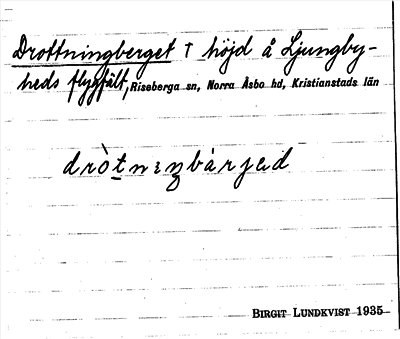 Drottningberget † höjd å Ljungby-
heds flygfält, Riseberga sn, Norra Åsbo hd, Kristianstads län
BIRGIT LUNDKVIST 1935